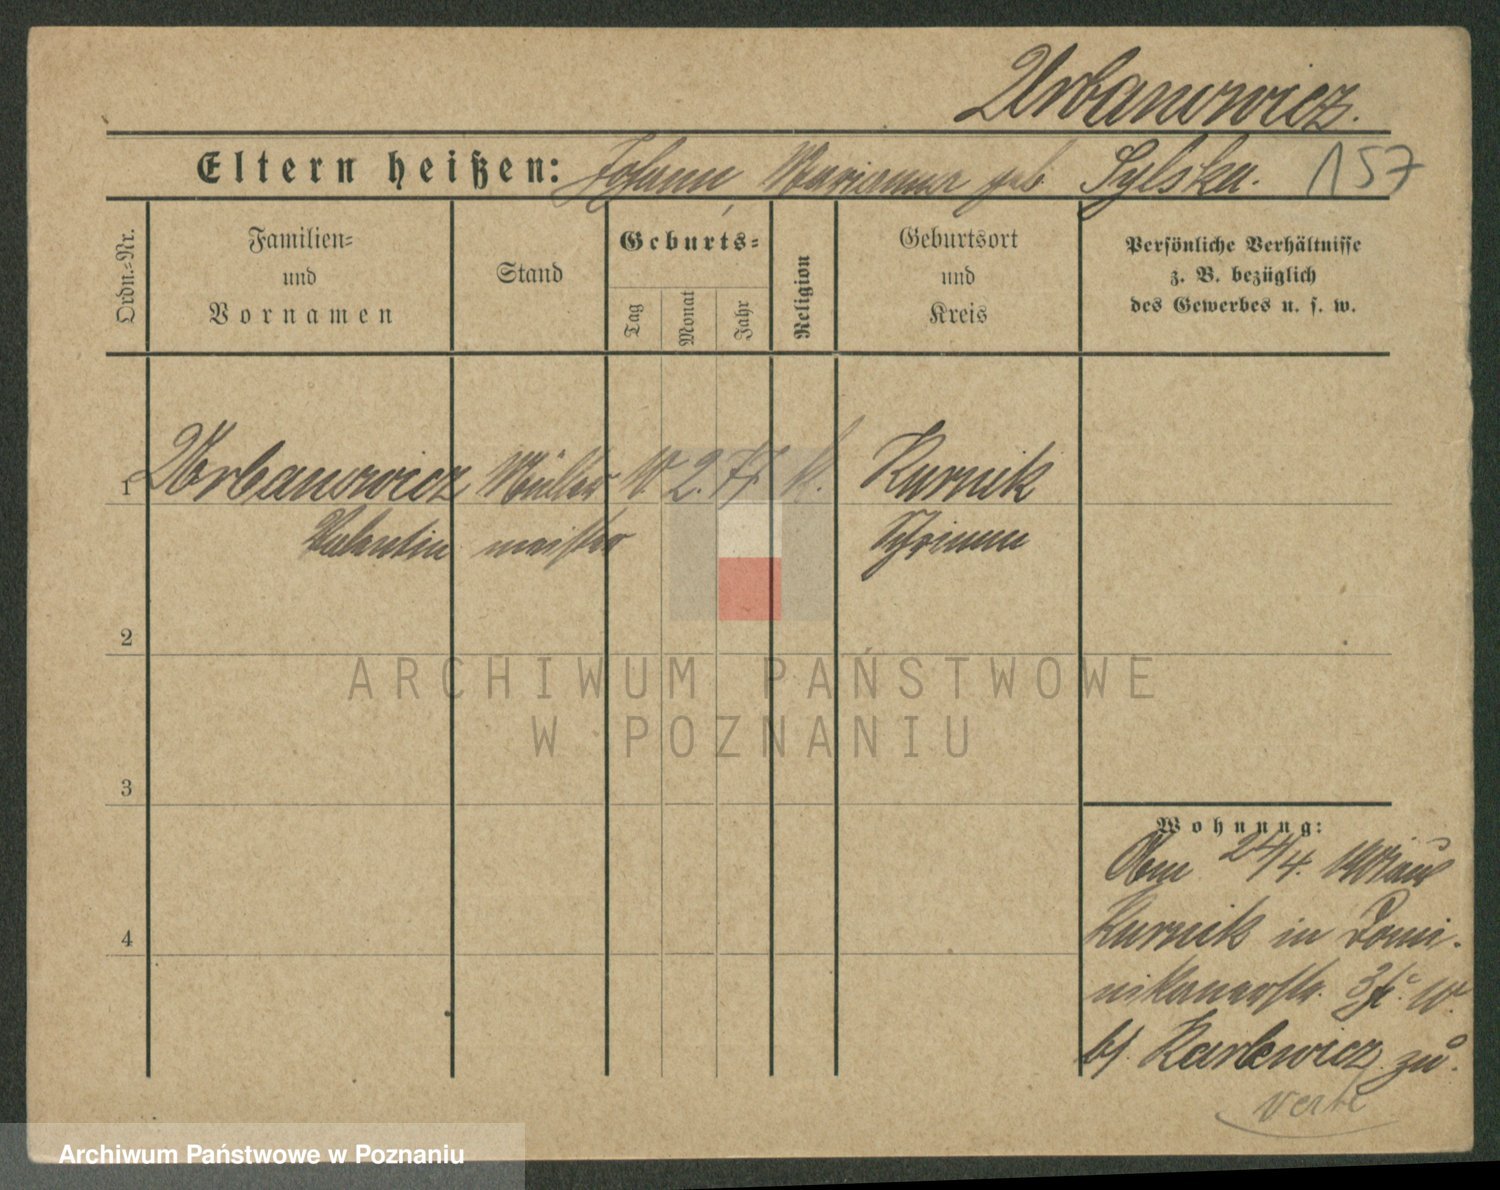 Urbanowicz.
Eltern heißen: Johann Marianna geb Sylska. 157
Ordn.-Nr.
Familien-
und
Vornamen
Stand
Geburts-
Tag
Monat
Jahr
Religion
Geburtsort
und
Kreis
Persönliche Verhältnisse
z. B. bezüglich
des Gewerbes u. s. w.
1 Urbanowicz Müller 2. K. Kurnik
Valentin meister Schrimm
2
3
4
Wohnung:
24/4. aus
Kurnik in Domi-
nikanerstr.
bf. Karlewicz zu.
ARCHIWUM PAŃSTWOWE
W POZNANIU
Archiwum Państwowe w Poznaniu